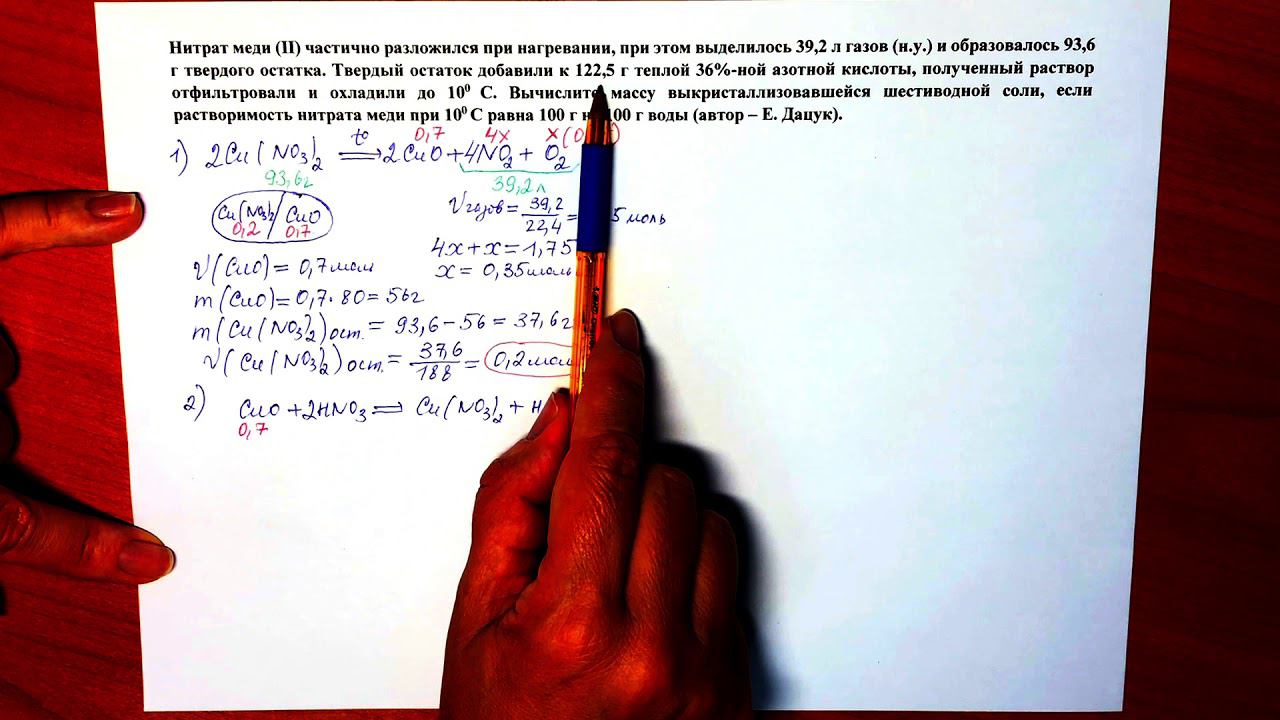 Нитрат меди (II) частично разложился при нагревании, при этом выделилось 39,2 л газов (н.у.) и образовалось 93,6
г твердого остатка. Твердый остаток добавили к 122,5 г теплой 36%-ной азотной кислоты, полученный раствор
отфильтровали и охладили до 10⁰ С. Вычислите массу выкристаллизовавшейся шестиводной соли, если
растворимость нитрата меди при 10⁰ С равна 100 г 100 г воды (автор – Е. Дацук).
t° 0,7 4x x(0
1) 2Cu(NO3)2 = 2CuO + 4NO2 + O2
93,6г 39,2л
Cu(NO3)2 / CuO
0,2 0,7
νгазов = 39,2/22,4 = 5 моль
4x + x = 1,75
ν(CuO) = 0,7 моль x = 0,35 моль
m(CuO) = 0,7·80 = 56г
m(Cu(NO3)2)ост. = 93,6 – 56 = 37,6г
ν(Cu(NO3)2)ост. = 37,6/188 = 0,2 моль
2) CuO + 2HNO3 = Cu(NO3)2 + H
0,7